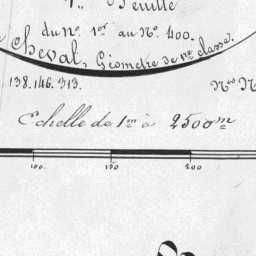 1re Feuille
du No. 1er au No. 400.
Cheval, Géomètre de 1re classe.
138.146.313.
Nos N
Echelle de 1m à 2500m
100. 150 200